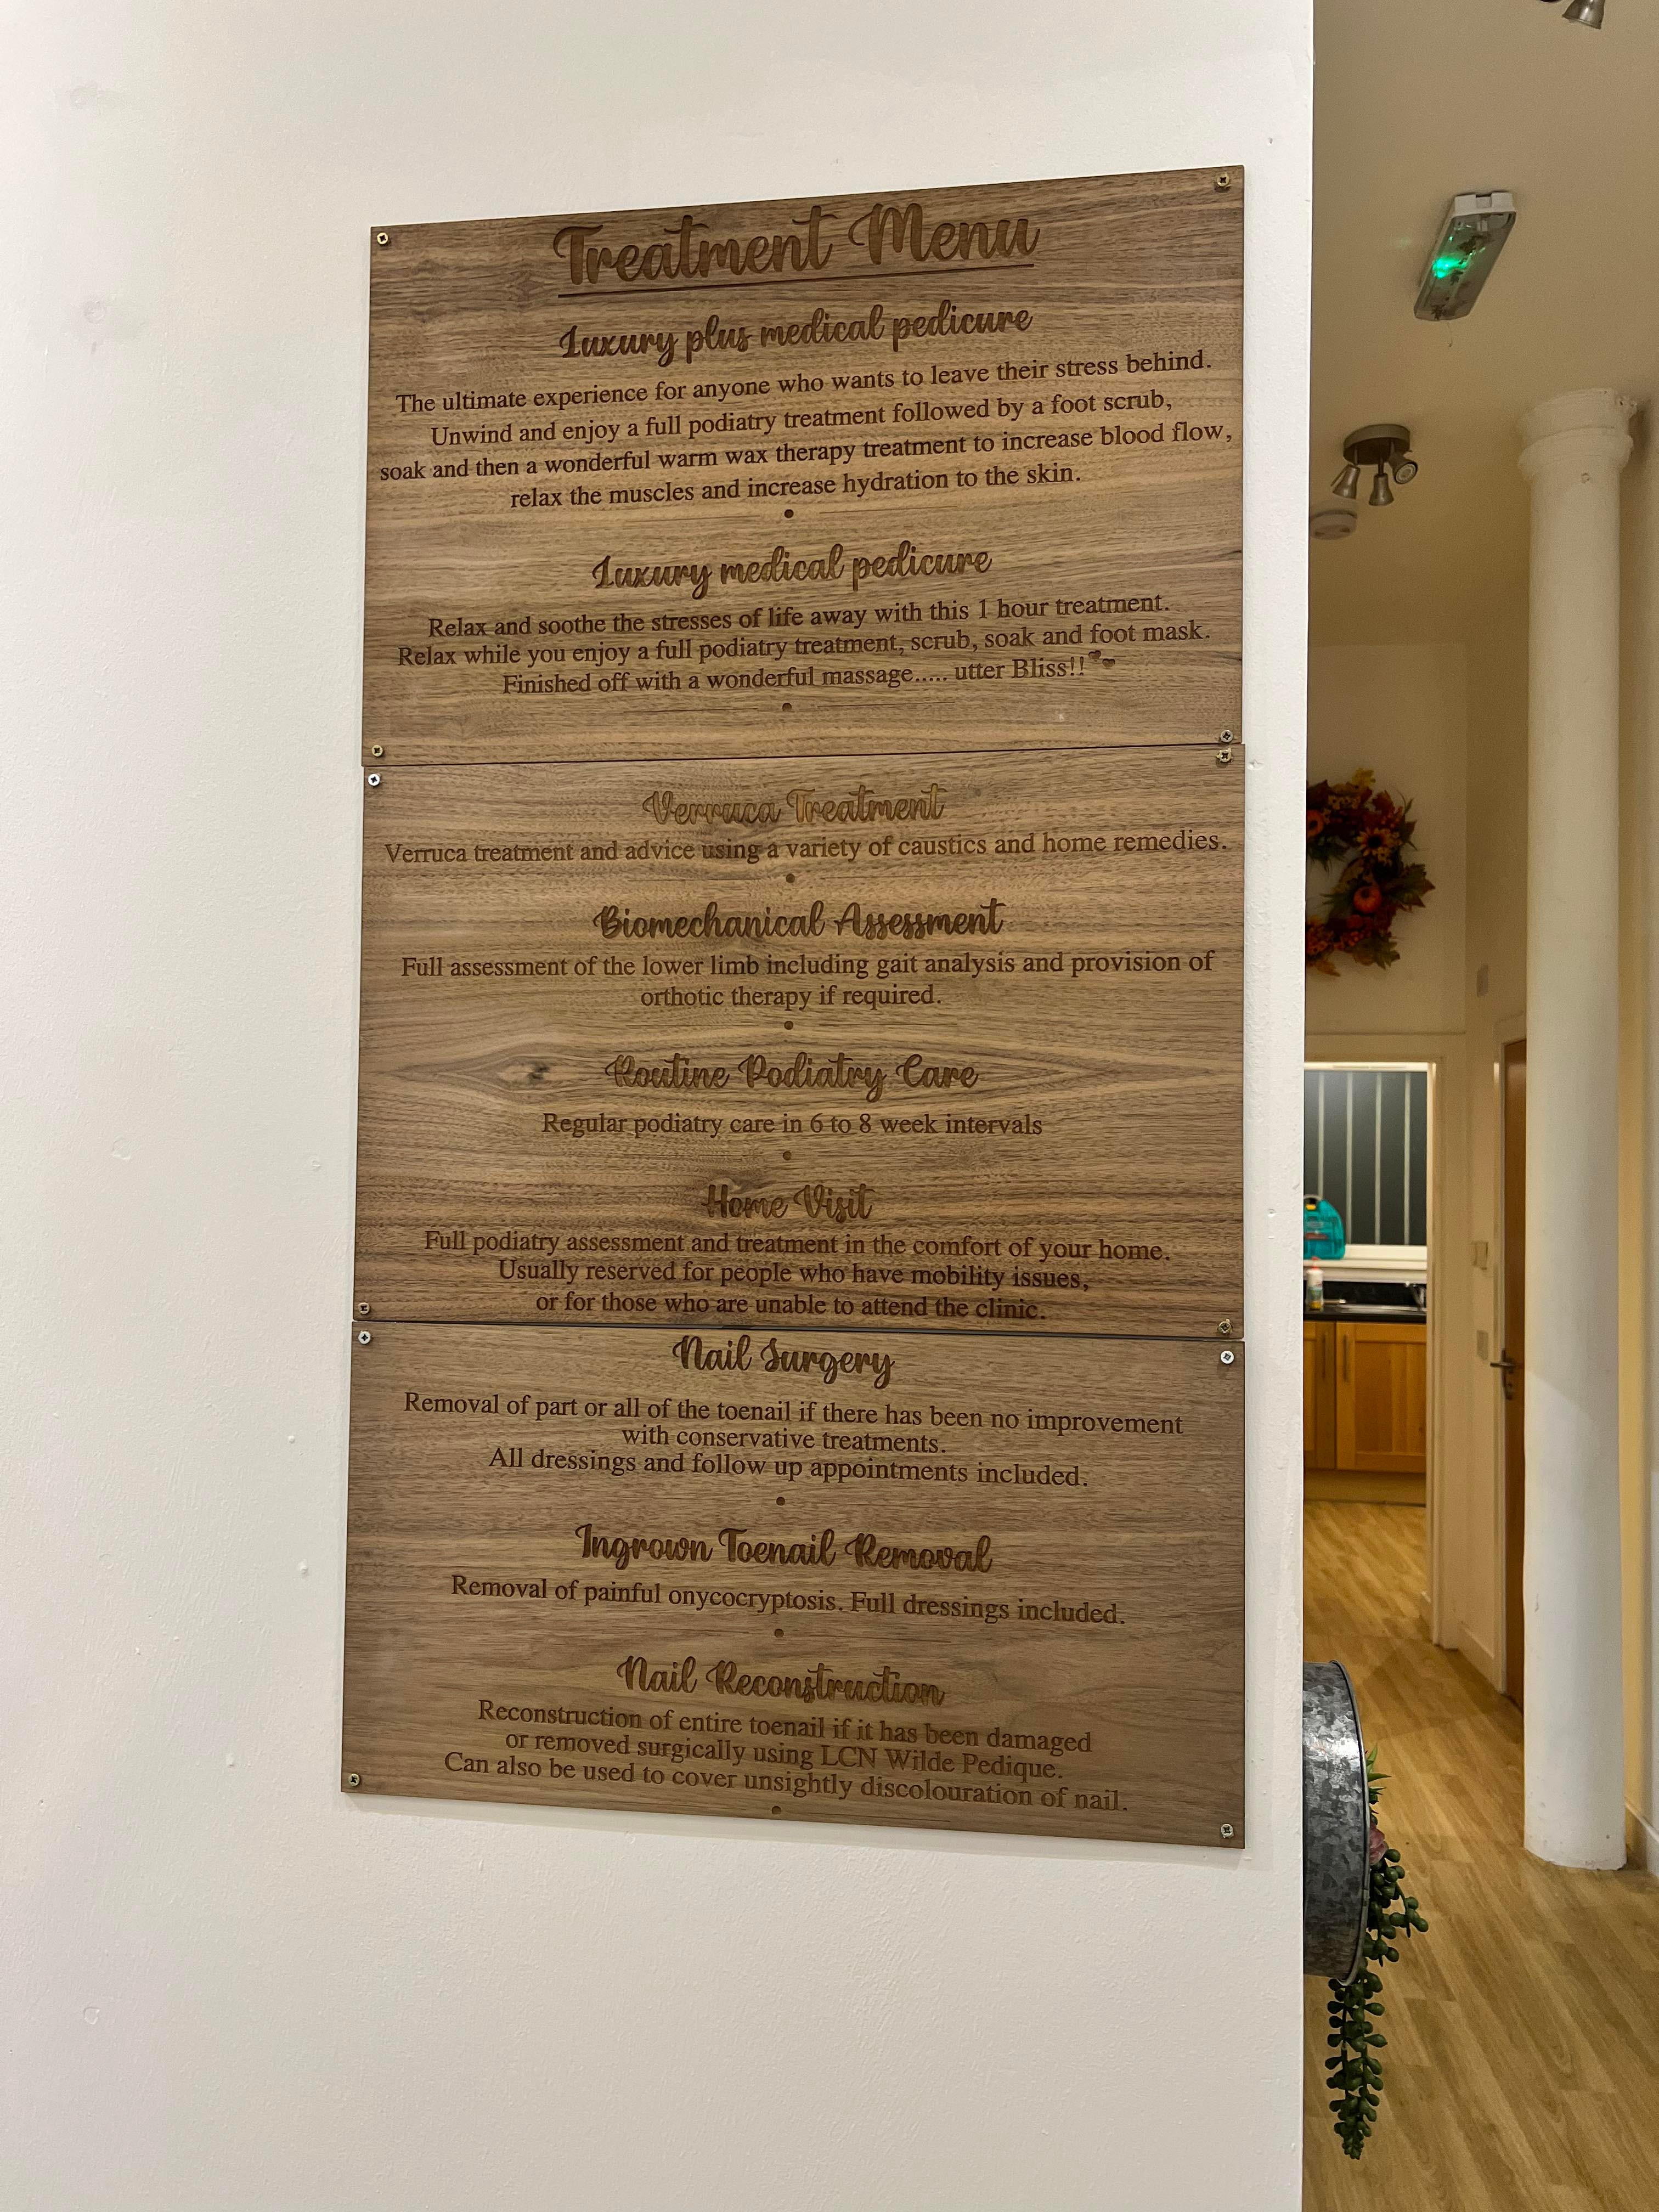 Treatment Menu
Luxury plus medical pedicure
The ultimate experience for anyone who wants to leave their stress behind.
Unwind and enjoy a full podiatry treatment followed by a foot scrub,
soak and then a wonderful warm wax therapy treatment to increase blood flow,
relax the muscles and increase hydration to the skin.
Luxury medical pedicure
Relax and soothe the stresses of life away with this 1 hour treatment.
Relax while you enjoy a full podiatry treatment, scrub, soak and foot mask.
Finished off with a wonderful massage..... utter Bliss!!
Verruca Treatment
Verruca treatment and advice using a variety of caustics and home remedies.
Biomechanical Assessment
Full assessment of the lower limb including gait analysis and provision of
orthotic therapy if required.
Routine Podiatry Care
Regular podiatry care in 6 to 8 week intervals
Home Visit
Full podiatry assessment and treatment in the comfort of your home.
Usually reserved for people who have mobility issues,
or for those who are unable to attend the clinic.
Nail Surgery
Removal of part or all of the toenail if there has been no improvement
with conservative treatments.
All dressings and follow up appointments included.
Ingrown Toenail Removal
Removal of painful onycocryptosis. Full dressings included.
Nail Reconstruction
Reconstruction of entire toenail if it has been damaged
or removed surgically using LCN Wilde Pedique.
Can also be used to cover unsightly discolouration of nail.